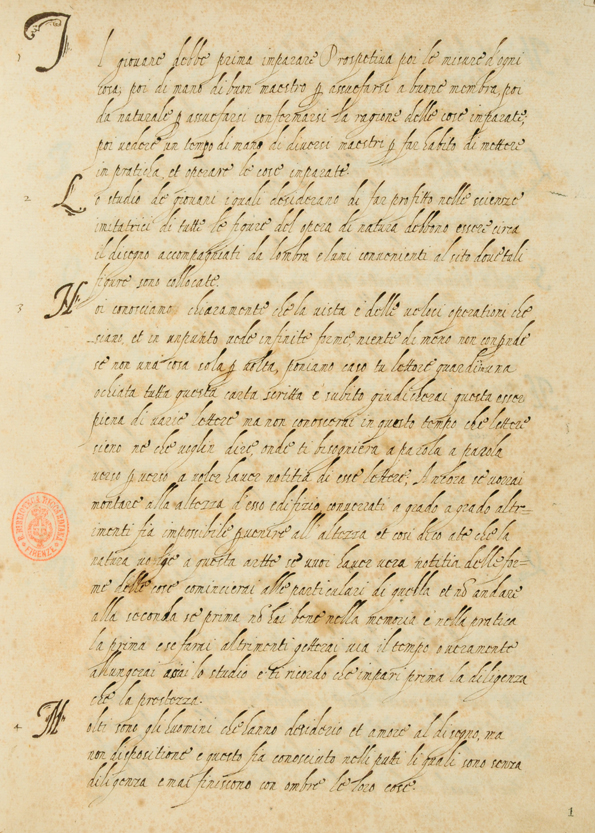 1 Il giovane debbe prima imparare Prospetiva poi le misure d'ogni
cosa, poi di mano di buon maestro p assuefarsi a buone membra, poi
da naturale p assuefarsi confermarsi la ragione delle cose imparate,
poi vedere un tempo di mano di diversi maestri p far habito di mettere
in pratica, et operare le cose imparate.
2 Lo studio de giovani i quali desiderano di far profitto nelle scienze
imitatrici di tutte le figure del opera di natura debbono essere circa
il disegno accompagniati da lombra e lumi convenienti al sito dove tali
figure sono collocate.
3 Noi conosciamo chiaramente che la vista è delle veloci operationi che
siano, et in un punto vede infinite forme niente di meno non conpnde
se non una cosa sola p volta, poniamo caso tu lettore guardi in una
ochiata tutta questa carta scritta e subito giudicherai questa esser
piena di varie lettere ma non conoscerai in questo tempo che lettere
sieno ne che voglin dire, onde ti bisogniera a parola a parola
verso p verso a voler haver notitia di esse lettere; Ancora se vorrai
montare alla altezza d'esso edifizio converrati a grado a grado altr=
imenti fia impossibile pvenire all altezza et cosi dico a te che la
natura volge a questa artte se vuoi haver vera notitia delle for=
me delle cose comincierai alle particulari di quella et nõ andare
alla seconda se prima nõ hai bene nella memoria e nella pratica
la prima e se farai altrimenti getterai via il tempo o veramente
allungerai assai lo studio e ti ricordo che impari prima la diligenza
che la prestezza.
4 Molti sono gli huomini che hanno desiderio et amore al disegno, ma
non dispositione e questo fia conosciuto nelli putti li quali sono senza
diligenza e mai finiscono con ombre le loro cose.
1